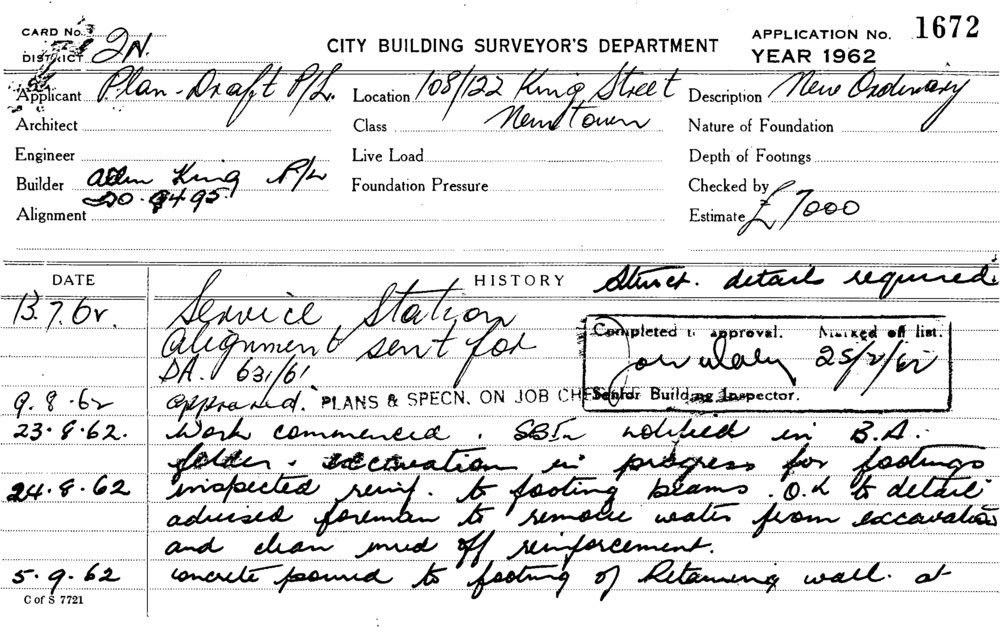 CARD No. 3
DISTRICT 2N.
CITY BUILDING SURVEYOR'S DEPARTMENT
APPLICATION No. 1672
YEAR 1962
Applicant Plan-Draft P/L.
Location 108/122 King Street
Newtown
Description New Ordinary
Architect
Class
Nature of Foundation
Engineer
Live Load
Depth of Footings
Builder Allen King P/L
20.9495
Foundation Pressure
Checked by
Alignment
Estimate £7000
DATE
HISTORY
Struct. details required.
13.7.62. Service Station
Alignment sent for
DA. 631/61
Completed to approval. Marked off list.
25/2/62
Senior Building Inspector.
9.8.62 approved. PLANS & SPECN. ON JOB
23.8.62. Work commenced. SBIn notified in B.A.
folder. excavation in progress for footings
24.8.62 inspected reinf. to footing beams. O.K to detail
advised foreman to remove water from excavations
and clean mud off reinforcement.
5.9.62 concrete poured to footing of Retaining wall. at
C of S 7721